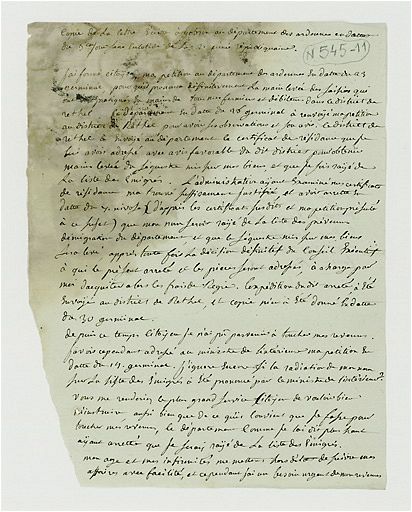 Copie de la lettre Ecrite à au département des ardennes en datte
du 5e Jour de la 3e année républiquaine.
N 545-11
J'ai formé citoyen, ma petition au département des ardennes en datte du 23
germinal, pour qu'il prononce définitivement La main levée des saisies qui
ont été es mains de tous mes fermiers et débiteurs dans Le district de
rethel. Le département en datte du 28 germinal à renvoyé ma petition
au district de Rethel pour avoir ses observations et son avis. Le district de
rethel à Envoyé au département Le certificat de résidence que je
Lui avois adressé avec avis favorable du dit district pour obtenir
main levée du séquestre mis sur mes biens et que je sois rayé de
La liste des émigrés. L'administration ayant Examiné mes certificats
de résidence m'a trouvé suffisamment justifié et à voir arrêté en
datte du 7 nivose (d'après les certificats susdits et ma petition présentée
à ce sujet) que mon nom seroit rayé de La liste des prévenus
d'émigration du département et que Le séquestre mis sur mes biens
sera levé après toute fois La décision définitive du Conseil Exécutif
à qui le présent arrêté et les pièces seront adressés, à charge par
moi d'acquitter alors les frais de régie. L'expédition dudit arrêté à été
Envoyé au district de Rethel, et copie m'en à été donné En datte
du 30 germinal.
depuis ce temps citoyen je n'ai pû parvenir à toucher mes revenus.
j'avois cependant adressé au ministre de L'intérieur ma petition en
datte du 14 germinal. j'ignore Encore si La radiation de mon nom
sur La liste des Emigrés à été prononcé par Le ministre de L'intérieur?
Vous me rendriez Le plus grand service citoyen de vouloir bien
m'instruire aussi bien que de ce qu'il convient que je fasse pour
toucher mes revenus, Le département comme je l'ai dit plus haut
ayant arrêté que je serois rayé de La liste des Emigrés.
mon age et mes infirmités me mettent hors d'état de suivre mes
affaires avec facilité, et cependant j'ai un besoin urgent de mon revenu